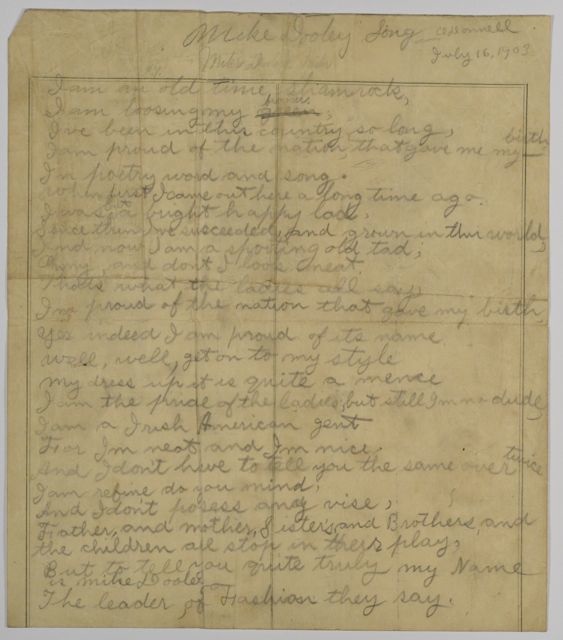 Mike Dooley Song O'Donnell
July 16, 1903
I am an old time shamrock,
I am loosing my green,
I've been in this country so long,
I am proud of the nation that gave me my birth
In poetry word and song.
When first I came out here a long time ago.
I was a bright happy lad,
Since then I've succeeded, and grown in this world,
And now I am a sporting old tad,
and don't I look neat.
That's what the ladies all say,
I'm proud of the nation that gave my birth,
Yes indeed I am proud of its name.
Well, well, get on to my style
My dress up it is quite a mence
I am the pride of the ladies, but still I'm no dude,
I am a Irish American gent
For I'm neat and I'm nice.
And I don't have to tell you the same over twice
I am refine do you mind,
And I don't posess any vise,
Father, and mother, Sisters, and Brothers, and
the children all stop in their play,
But to tell you quite truly my Name
is Mike Dooley
The leader of Fashion they say.